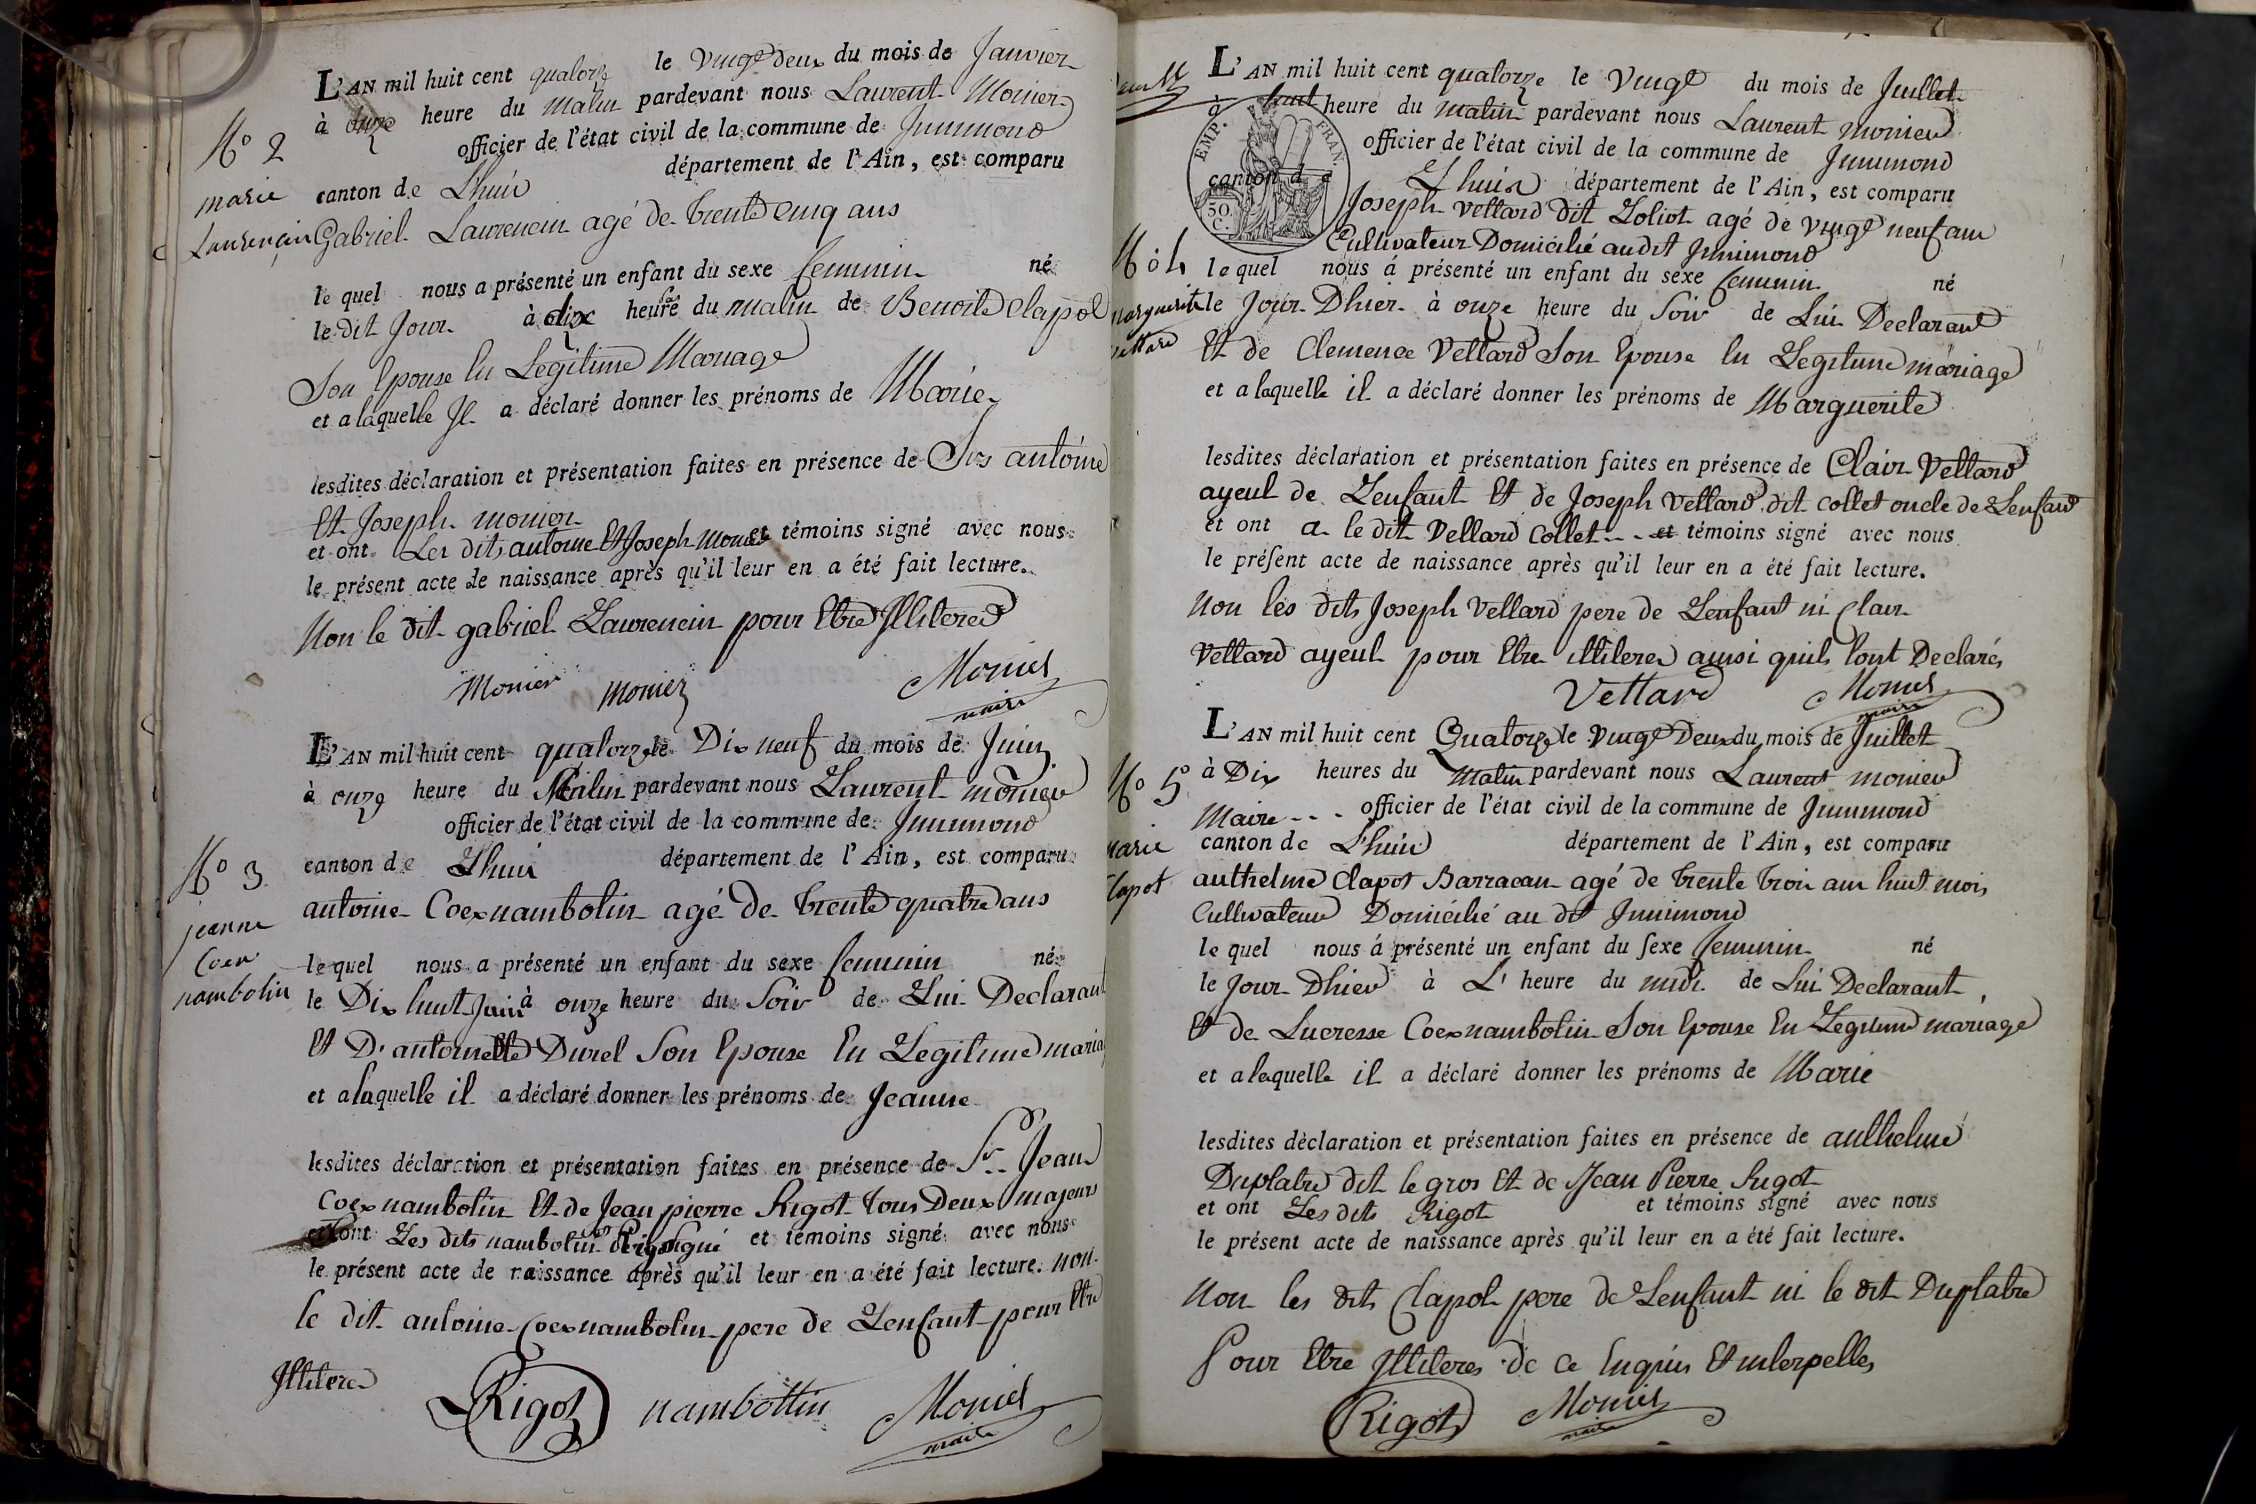 L'AN mil huit cent quatorze le vingt deux du mois de Janvier
à onze heure du matin pardevant nous Laurent Monier
officier de l'état civil de la commune de Jnnimond
canton de Lhuis département de l'Ain, est comparu
Gabriel Laurencin agé de trente cinq ans
le quel nous a présenté un enfant du sexe feminin né
le dit Jour à dix heures du matin de Benoite Clapot
Son Epouse En Legitime Mariage
et a laquelle Jl a déclaré donner les prénoms de Marie
lesdites déclaration et présentation faites en présence de Srs antoine
Et Joseph monier
et ont Les dits antoine Et Joseph Monier et témoins signé avec nous
le présent acte de naissance après qu'il leur en a été fait lecture.
Non le dit gabriel Laurencin pour Etre Jlliteré
Monier monier Monier
maire
No 2
marie
Laurençin
L'AN mil huit cent quatorze le Dix neuf du mois de Juin
à onze heure du Matin pardevant nous Laurent monier
officier de l'état civil de la commune de Jnnimond
canton de Lhuis département de l'Ain, est comparu
antoine Coexnambotin agé de trente quatre ans
le quel nous a présenté un enfant du sexe feminin né
le Dix huit Juin à onze heure du Soir de Lui Declarant
Et D'antoinette Durel Son Epouse En Legitime mariage
et a laquelle il a déclaré donner les prénoms de Jeanne
lesdites déclaration et présentation faites en présence de Sr Jean
Coexnambotin Et de Jean pierre Rigot tous Deux majeurs
et ont Les dits nambotin Rigot Signé et témoins signé avec nous
le présent acte de naissance après qu'il leur en a été fait lecture. non
le dit antoine Coexnambotin pere de Lenfant pour Etre
Jlliteré
Rigot nambottin Monier
maire
No 3
jeanne
Coex
nambotin
L'AN mil huit cent quatorze le vingt du mois de Juillet
à huit heure du matin pardevant nous Laurent monier
officier de l'état civil de la commune de Jnnimond
canton de Lhuis département de l'Ain, est comparu
Joseph Vettard dit Loliot agé de vingt neuf ans
Cultivateur Domicilié audit Jnnimond
le quel nous á présenté un enfant du sexe feminin né
le Jour Dhier à onze heure du Soir de Lui Declarant
Et de Clemence Vettard Son Epouse En Legitime mariage
et a laquelle il a déclaré donner les prénoms de Marguerite
lesdites déclaration et présentation faites en présence de Clair Vettard
ayeul de Lenfant Et de Joseph Vettard dit Collet oncle de Lenfant
et ont a le dit Vettard Collet et témoins signé avec nous
le présent acte de naissance après qu'il leur en a été fait lecture.
Non les dits Joseph Vettard pere de Lenfant ni Clair
Vettard ayeul pour Etre illiteres ainsi quils lont Declarés
Vettard Monier
maire
EMP. FRAN.
50.
C.
No 4
marguerite
vettard
L'AN mil huit cent Quatorze le vingt Deux du mois de Juillet
à Dix heures du Matin pardevant nous Laurent monier
Maire officier de l'état civil de la commune de Jnnimond
canton de Lhuis département de l'Ain, est comparu
anthelme Clapot Barracan agé de trente trois ans huit mois
Cultivateur Domicilié au dit Jnnimond
le quel nous á présenté un enfant du sexe feminin né
le Jour Dhier à L' heure du midi de Lui Declarant
Et de Lucresse Coexnambotin Son Epouse En Legitime mariage
et a laquelle il a déclaré donner les prénoms de Marie
lesdites dèclaration et présentation faites en présence de anthelme
Duplatre dit le gros Et de Jean Pierre Rigot
et ont Les dits Rigot et témoins signé avec nous
le présent acte de naissance après qu'il leur en a été fait lecture.
Non les dits Clapot pere de Lenfant ni le dit Duplatre
Pour Etre Jlliteres de ce Enquis Et interpelles
Rigot Monier
maire
No 5
marie
Clapot